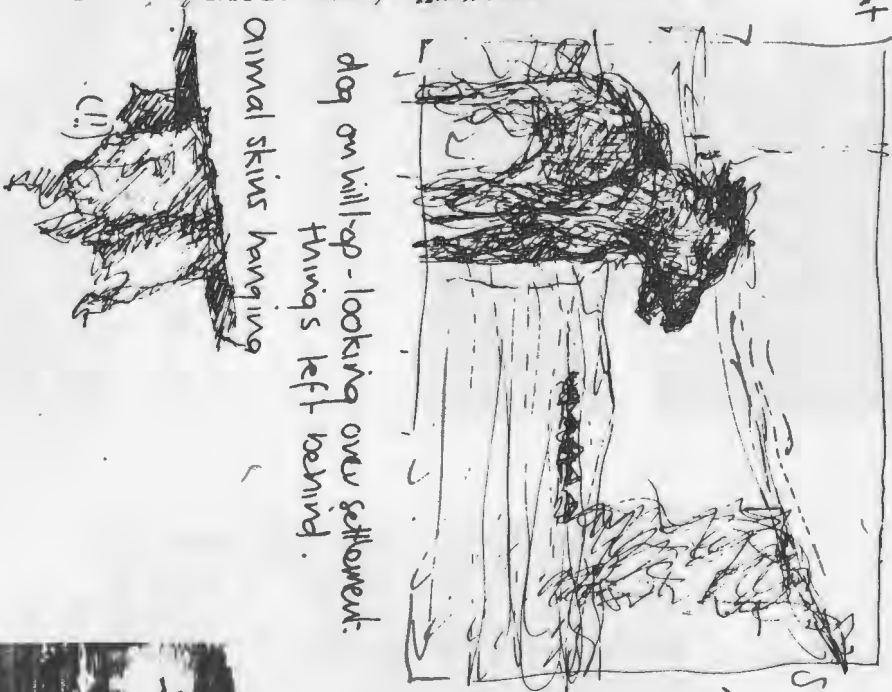 dog on hilltop - looking over settlement.
things left behind.
aimal skins hanging
(!!)